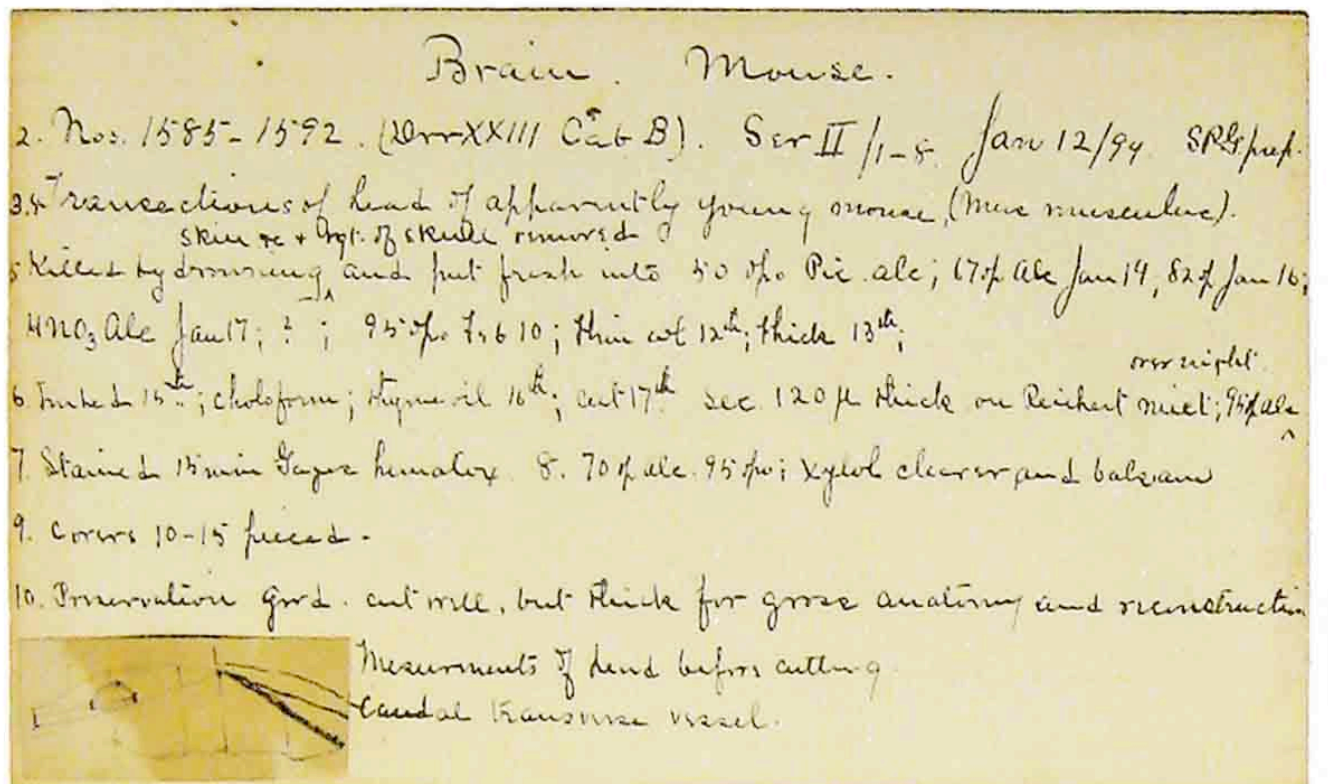 Brain. Mouse.
2. Nos. 1585-1592. (Drr XXIII Cab B). Ser II/1-8 Jan 12/99 SPG prep.
3.4 Transections of head of apparently young mouse, (Mus musculus).
skin &c + of skull removed
5 Killed by drowning and put fresh into 50 Pic. alc; 67 Alc Jan 14, 82 Jan 16;
HNO3 Alc Jan 17; ? ; 95 10; thin col 12th; thick 13th;
over night.
6. Imbed 15th; choloform; thyme oil 16th; cut 17th sec. 120 µ thick on Reichert mict; 95 alc
7. Stained 15 min Gages hematox. 8. 70 alc. 95; xylol clearer and balsam
9. Covers 10-15
10. Preservation good. cut well, but thick for gross anatomy and reconstruction
Mesurments of head before cutting
caudal transverse vessel.